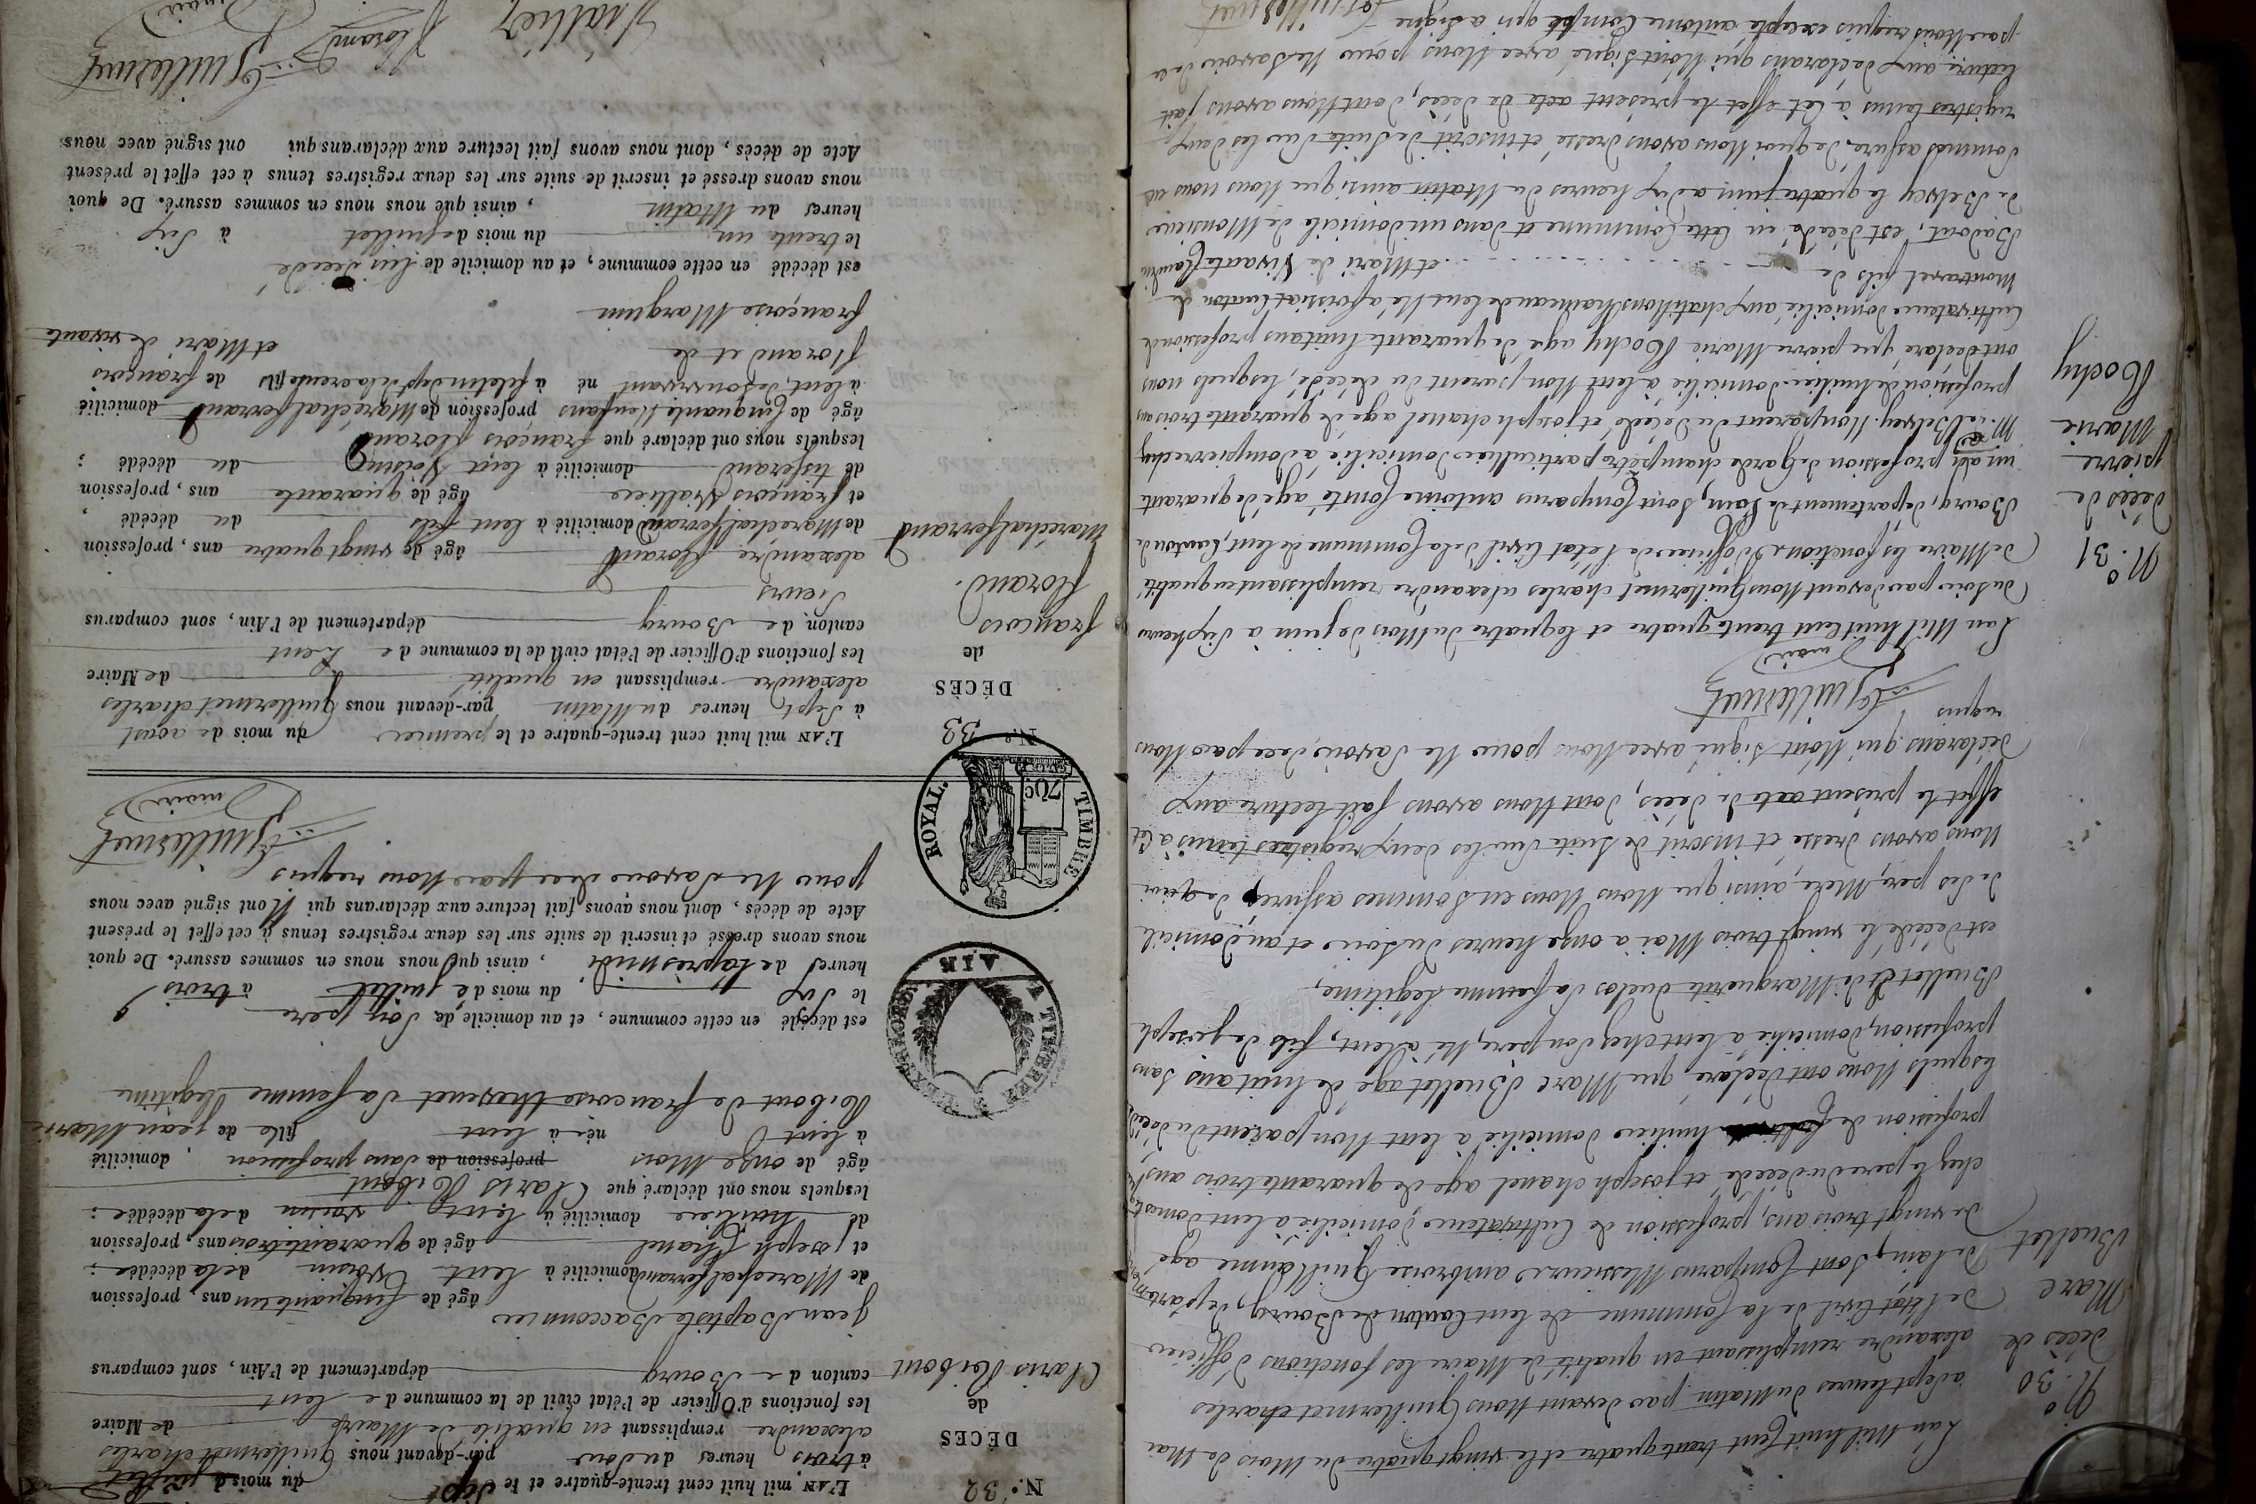 N.° 30
décès de
Marc
Buellet
L'an Mil huit Cent trente quatre et le vingt quatre du Mois de Mai
à Sept heures du Matin par devant Nous Guillermet charles
alexandre remplissant en qualité de Maire les fonctions d'officier
de l'état Civil de la Commune de lent Canton de Bourg, départem.t
de l'ain, Sont Comparus Messieurs ambroise Guillaume agé
de vingt trois ans, profession de Cultivateur, domicilié à lent domest.
chez le pere du décédé et joseph chanel age de quarante trois ans
profession de huilier domicilié à lent Non parent du décédé
lesquels Nous ont déclaré que Marc Buellet agé de huit ans Sans
profession, domicilié à lent chez Son père, Né à lent, fils de joseph
Buellet et de Marguerite duclos Sa femme Légitime,
est décédé le vingt trois Mai à onze heures du Soir et au domicile
de Ses pere, Mere, ainsi que Nous Nous en Sommes assuré, de quoi
Nous avons dresse et inscrit de Suite Sur les deux registres tenus à Cet
effet le présent acte de décès, dont Nous avons fait lecture aux
déclarans qui N'ont Signé avec Nous pour Ne Savoir, de ce par Nous
requis
Guillermet
maire
N.° 31
décès de
pierre
Marie
Rochy
L'an Mil huit Cent trente quatre et le quatre du Mois de juin à Six heures
du Soir par devant Nous Guillermet charles alexandre remplissant en qualité
de Maire les fonctions d'officier de l'état Civil de la Commune de lent, Canton de
Bourg, département de l'ain, Sont Comparus antoine Comte agé de quarante
un ans profession de Garde champêtre particulier domicilié à dompierre chez
M. de Belvey Non parent du Décédé et joseph chanel agé de quarante trois ans
profession de huilier domicilié à lent Non parent du décédé, lesquels nous
ont déclaré que pierre Marie Rochy agé de quarante huit ans profession de
Cultivateur domicilié aux chatillons hameau de lent Né à foissiat Canton de
Montrevel fils de et Mari de Vivante Claudine
Badout, est décédé en Cette Commune et dans un domicile de Monsieur
de Belvey le quatre juin a dix heures du Matin ainsi que Nous nous en
Sommes assuré, de quoi Nous avons dressé et inscrit de Suite Sur les deux
registres tenus à Cet effet le présent acte de décès, dont Nous avons fait
lecture aux déclarans qui N'ont Signé avec Nous pour Ne Savoir de ce
par Nous requis excepté antoine Comte qui a Signé
Guillermet
N.° 32
DÉCÈS
de
Claris Ribout
L'AN mil huit cent trente-quatre et le Sept du mois de juillet
à trois heures du Soir par-devant nous Guillermet charles
alexandre remplissant en qualité de Maire de Maire
les fonctions d'Officier de l'état civil de la commune de lent
canton de Bourg département de l'Ain, sont comparus
jean Baptiste Bacconnier âgé de Cinquante un ans, profession
de Marechal ferrand domicilié à lent voisin de la décédée ;
et joseph Chanel âgé de quarante trois ans, profession
de huilier domicilié à lent voisin de la décédée ;
lesquels nous ont déclaré que Claris Ribout
âgé de onze Mois profession de Sans profession, domicilié
à lent née à lent fille de jean Marie
Ribout de francoise thevenet Sa femme Légitime
est décédé en cette commune, et au domicile de Son pere
le Six du mois de juillet à trois
heures de l'après midi, ainsi que nous nous en sommes assuré. De quoi
nous avons dressé et inscrit de suite sur les deux registres tenus à cet effet le présent
Acte de décès, dont nous avons fait lecture aux déclarans qui N'ont signé avec nous
pour Ne Savoir de ce par Nous requis
Guillermet
maire
A TIMBRER
AIN
TIMBRE
ROYAL.
70c
N.° 33
DÉCÈS
de
françois
florand.
Maréchal ferrand
L'AN mil huit cent trente-quatre et le premier du mois de aoust
à Sept heures du Matin par-devant nous Guillermet charles
alexandre remplissant en qualité de Maire
les fonctions d'Officier de l'état civil de la commune de Lent
canton de Bourg département de l'Ain, sont comparus
Sieurs
alexandre florand âgé de vingt quatre ans, profession
de Marechal ferrand domicilié à lent fils du décédé ;
et françois Vallier âgé de quarante ans, profession
de tisserand domicilié à lent Voisin du décédé ;
lesquels nous ont déclaré que françois florand
âgé de Cinquante Neuf ans profession de Maréchal ferrand domicilié
à lent, de son vivant né à fils de françois
florand et de et Mari de vivante
françoise Marguin
est décédé en cette commune, et au domicile de lui décédé
le trente un du mois de juillet à Six
heures du Matin, ainsi que nous nous en sommes assuré. De quoi
nous avons dressé et inscrit de suite sur les deux registres tenus à cet effet le présent
Acte de décès, dont nous avons fait lecture aux déclarans qui ont signé avec nous
Vallier florand Guillermet
maire